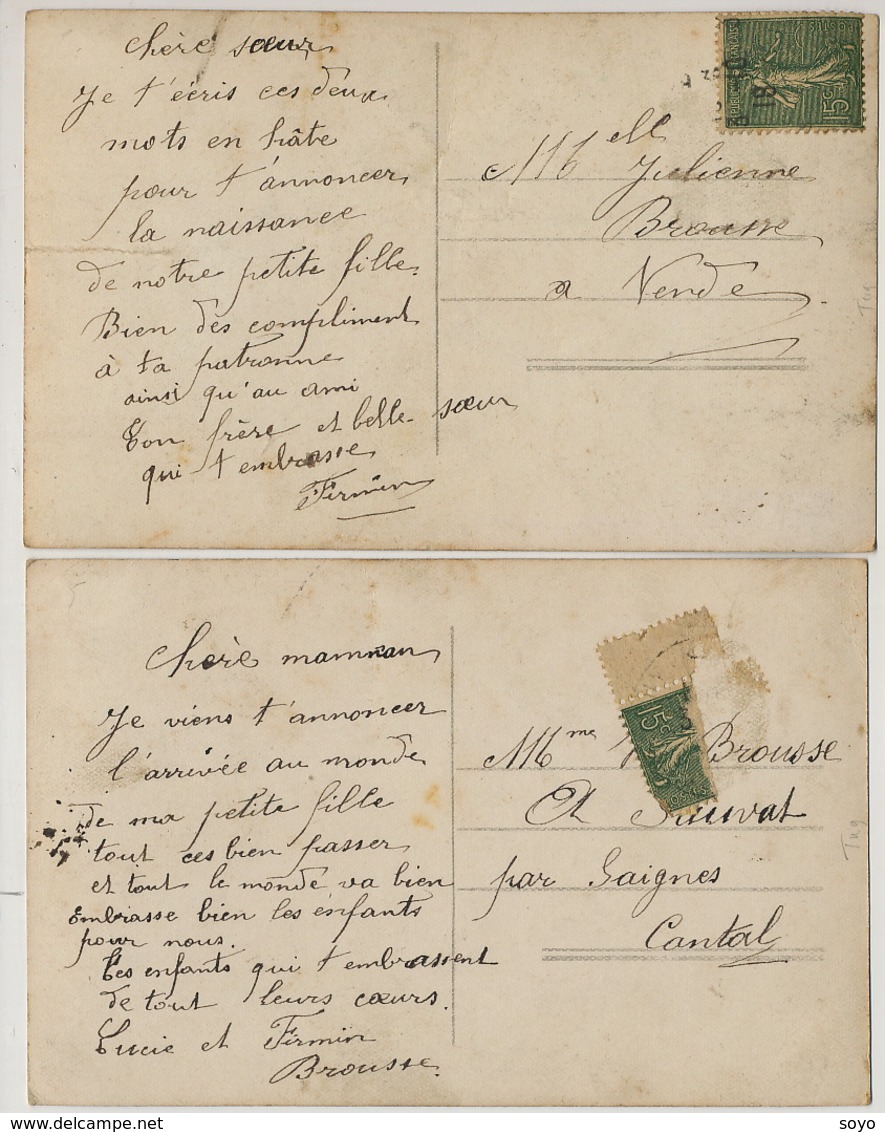 chère sœur
Je t'écris ces deux
mots en hâte
pour t'annoncer
la naissance
de notre petite fille
Bien des compliment
à ta patronne
ainsi qu'au ami
Ton frère et belle-sœur
qui t embrasse
Firmin
REPUBLIQUE FRANÇAISE
POSTES
15c
18
Mlle
Julienne
Brousse
a Vende
Tug
Chère mamman
Je viens t'annoncer
l'arrivée au monde
de ma petite fille
tout ces bien passer
et tout le monde va bien
Embrasse bien les enfants
pour nous.
Tes enfants qui t embrassent
de tout leurs cœurs.
Lucie et Firmin
Brousse
15c
POSTES
Mme Brousse
A
par Saignes
Cantal
Tug
soyo